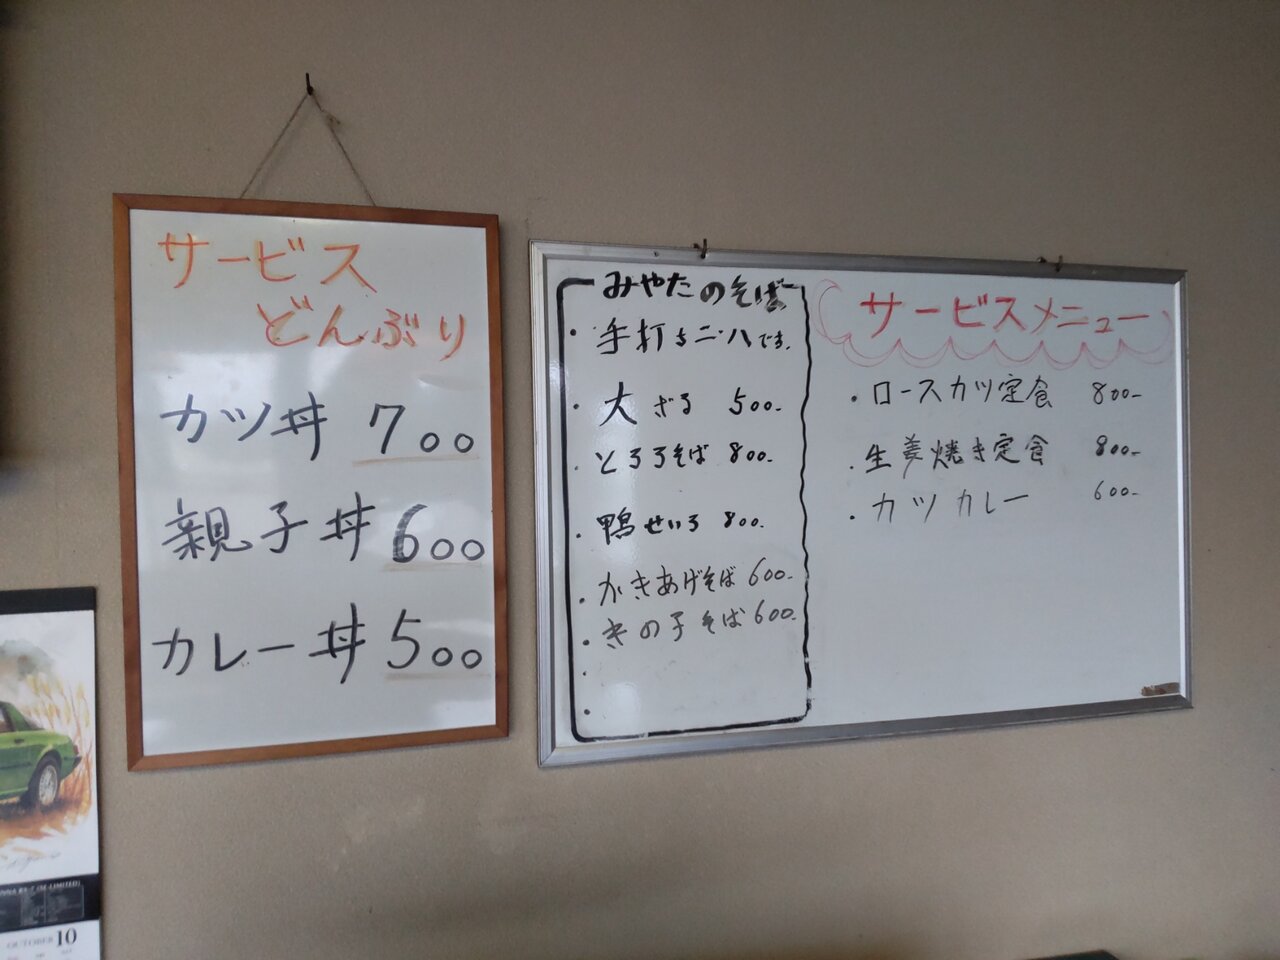 サービス
どんぶり
カツ丼 700
親子丼 600
カレー丼 500
みやたのそば
・手打ち二・八です。
・大ざる 500-
・とろろそば 800-
・鴨せいろ 800-
・かきあげそば 600-
・きの子そば 600-
サービスメニュー
・ロースカツ定食 800-
・生姜焼き定食 800-
・カツカレー 600-
OCTOBER 10